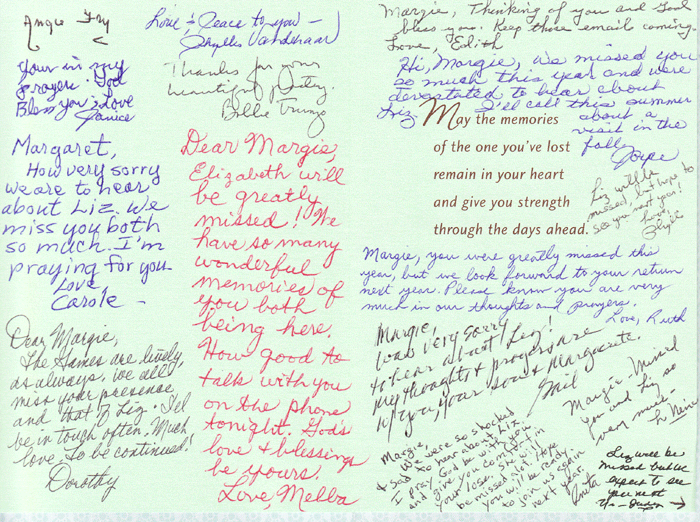 Angie Fry
Love & Peace to you –
Phyllis
Your in my
prayers. God
Bless you; Love
Janice
Thanks for your
beautiful poetry.
Billie
Margaret,
How very sorry
we are to hear
about Liz. We
miss you both
so much. I'm
praying for you.
Love,
Carole –
Dear Margie,
Elizabeth will
be greatly
missed! We
have so many
wonderful
memories of
you both
being here.
How good to
talk with you
on the phone
tonight. God's
love & blessings
be yours.
Love, Melba
Dear Margie,
The Games are lively,
as always, we all
miss your presence
and that of Liz. I'll
be in touch often. Much
love to be continued!
Dorothy
Margie, Thinking of you and God
bless you. Keep those email coming.
Love, Edith
Hi, Margie, we missed you
so much this year and were
devastated to hear about
Liz. I'll call this summer
about a
visit in the
fall.
Joyce
May the memories
of the one you've lost
remain in your heart
and give you strength
through the days ahead.
Liz will be
missed, but hope to
see you next year!
Love,
Margie, you were greatly missed this
year, but we look forward to your return
next year. Please know you are very
much in our thoughts and prayers.
Love, Ruth
Margie,
was very sorry
to hear about Liz!
My thoughts & prayers are
w/ you, your son & Marguerite.
Gail
Margie, Missed
you and Liz so
very much.
Margie,
We were so shocked
& sad to hear about Liz.
I pray God be with you
and give you comfort in
your loss. She will
be missed a lot. Hope
you will be ready
to join us again
next year.
Anita
Liz will be
missed but we
expect to see
you next